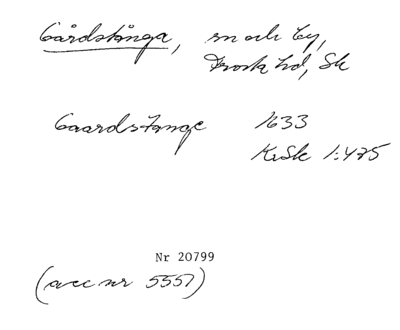 Gårdstånga, sn och by,
Frosta hd, Sk
Gaardstange 1633
KrSk 1:475
Nr 20799
(acc nr 5557)